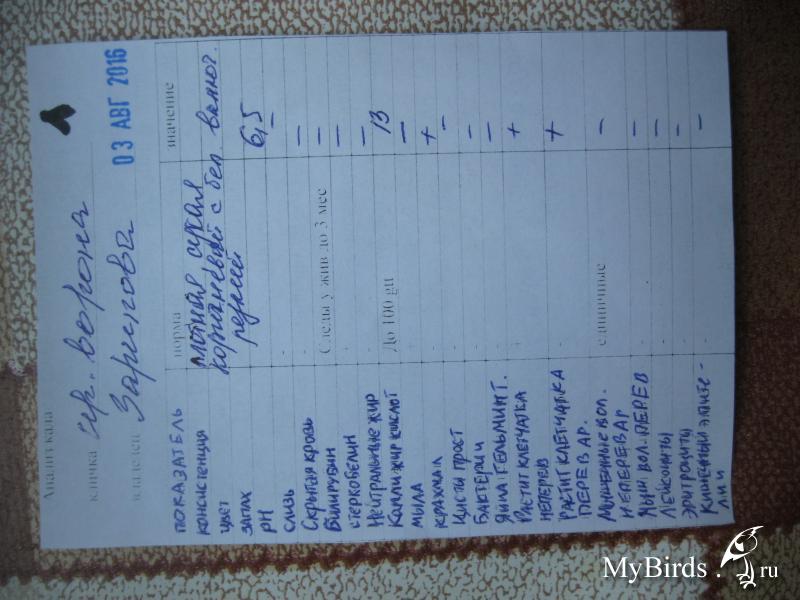 Анализ кала
кличка сер. ворона
владелец Зарипова 03 АВГ 2016
ПОКАЗАТЕЛЬ норма значение
консистенция плотная сухая
цвет коричневый с бел включ.
запах резкий
PH - 6,5
слизь - –
Скрытая кровь - –
Билирубин - –
стеркобелин
Нейтральные жир Следы у жив до 3 мес –
Капли жир кислот До 100 gu 13
мыла - –
крахмал - +
Цисты прост - –
Бактерии - –
яйца гельминт. - –
Растит клетчатка - +
неперев
Растит клетчатка - +
ПЕРЕВАР.
Мышечные вол. единичные –
НЕПЕРЕВАР
Мыш. вол. ПЕРЕВ - –
Лейкоциты - –
эритроциты - –
Клеточный эпите- - –
лии
MyBirds.ru